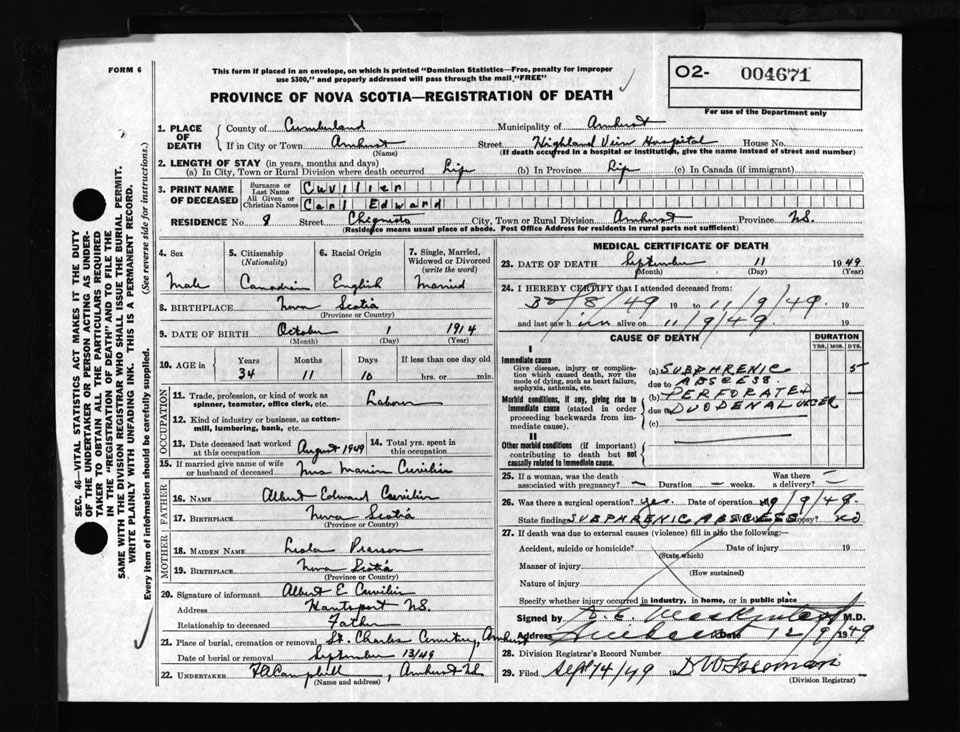 FORM 6
This form if placed in an envelope, on which is printed "Dominion Statistics—Free, penalty for improper
use $300," and properly addressed will pass through the mail "FREE"
PROVINCE OF NOVA SCOTIA—REGISTRATION OF DEATH
O2- 004671
For use of the Department only
1. PLACE OF DEATH
County of Cumberland Municipality of Amherst
If in City or Town Amherst Street Highland View Hospital House No.
(Name) (If death occurred in a hospital or institution, give the name instead of street and number)
2. LENGTH OF STAY (in years, months and days)
(a) In City, Town or Rural Division where death occurred Life (b) In Province Life (c) In Canada (if immigrant)
3. PRINT NAME OF DECEASED
Surname or Last Name Cuvilier
All Given or Christian Names Carl Edward
RESIDENCE No. 8 Street Chignecto City, Town or Rural Division Amherst Province N.S.
(Residence means usual place of abode. Post Office Address for residents in rural parts not sufficient)
4. Sex
Male
5. Citizenship
(Nationality)
Canadian
6. Racial Origin
English
7. Single, Married,
Widowed or Divorced
(write the word)
Married
8. BIRTHPLACE Nova Scotia
(Province or Country)
9. DATE OF BIRTH October 1 1914
(Month) (Day) (Year)
10. AGE in
Years Months Days If less than one day old
34 11 10 hrs. or min.
OCCUPATION
11. Trade, profession, or kind of work as
spinner, teamster, office clerk, etc. Labour
12. Kind of industry or business, as cotton-
mill, lumbering, bank, etc.
13. Date deceased last worked
at this occupation August 1949
14. Total yrs. spent in
this occupation
15. If married give name of wife
or husband of deceased Mrs Marion Cuvilier
FATHER
16. NAME Albert Edward Cuvilier
17. BIRTHPLACE Nova Scotia
(Province or Country)
MOTHER
18. MAIDEN NAME Pearson
19. BIRTHPLACE Nova Scotia
(Province or Country)
20. Signature of informant Albert E Cuvilier
Address Hantsport NS.
Relationship to deceased Father
21. Place of burial, cremation or removal St. Charles Cemetery, Amherst
Date of burial or removal September 13/49
22. UNDERTAKER Campbell, Amherst NS
(Name and address)
MEDICAL CERTIFICATE OF DEATH
23. DATE OF DEATH September 11 1949
(Month) (Day) (Year)
24. I HEREBY CERTIFY that I attended deceased from:
30/8/49 19 to 11/9/49. 19
and last saw h im alive on 11/9/49. 19
CAUSE OF DEATH
DURATION
YRS. MOS. DYS.
I
Immediate cause
Give disease, injury or complica-
tion which caused death, not the
mode of dying, such as heart failure,
asphyxia, asthenia, etc.
(a) SUBPHRENIC 5
due to ABSCESS.
Morbid conditions, if any, giving rise to
immediate cause (stated in order
proceeding backwards from im-
mediate cause).
(b) PERFORATED
due to DUODENAL ULCER
(c)
II
Other morbid conditions (if important)
contributing to death but not
causally related to immediate cause.
25. If a woman, was the death
associated with pregnancy? — Duration — weeks.
Was there
a delivery? —
26. Was there a surgical operation? yes. Date of operation 9/49.
State findings SUBPHRENIC ABSCESS Was there autopsy? NO
27. If death was due to external causes (violence) fill in also the following:—
Accident, suicide or homicide? Date of injury 19
(State which)
Manner of injury
(How sustained)
Nature of injury
Specify whether injury occurred in industry, in home, or in public place
Signed by M.D.
Address Amherst Date 12/9/1949
28. Division Registrar's Record Number
29. Filed Sept 14/49 19
(Division Registrar)
SEC. 46—VITAL STATISTICS ACT MAKES IT THE DUTY
OF THE UNDERTAKER OR PERSON ACTING AS UNDER-
TAKER TO OBTAIN ALL THE PARTICULARS REQUIRED
IN THE "REGISTRATION OF DEATH" AND TO FILE THE
SAME WITH THE DIVISION REGISTRAR WHO SHALL ISSUE THE BURIAL PERMIT.
WRITE PLAINLY WITH UNFADING INK. THIS IS A PERMANENT RECORD.
Every item of information should be carefully supplied. (See reverse side for instructions.)